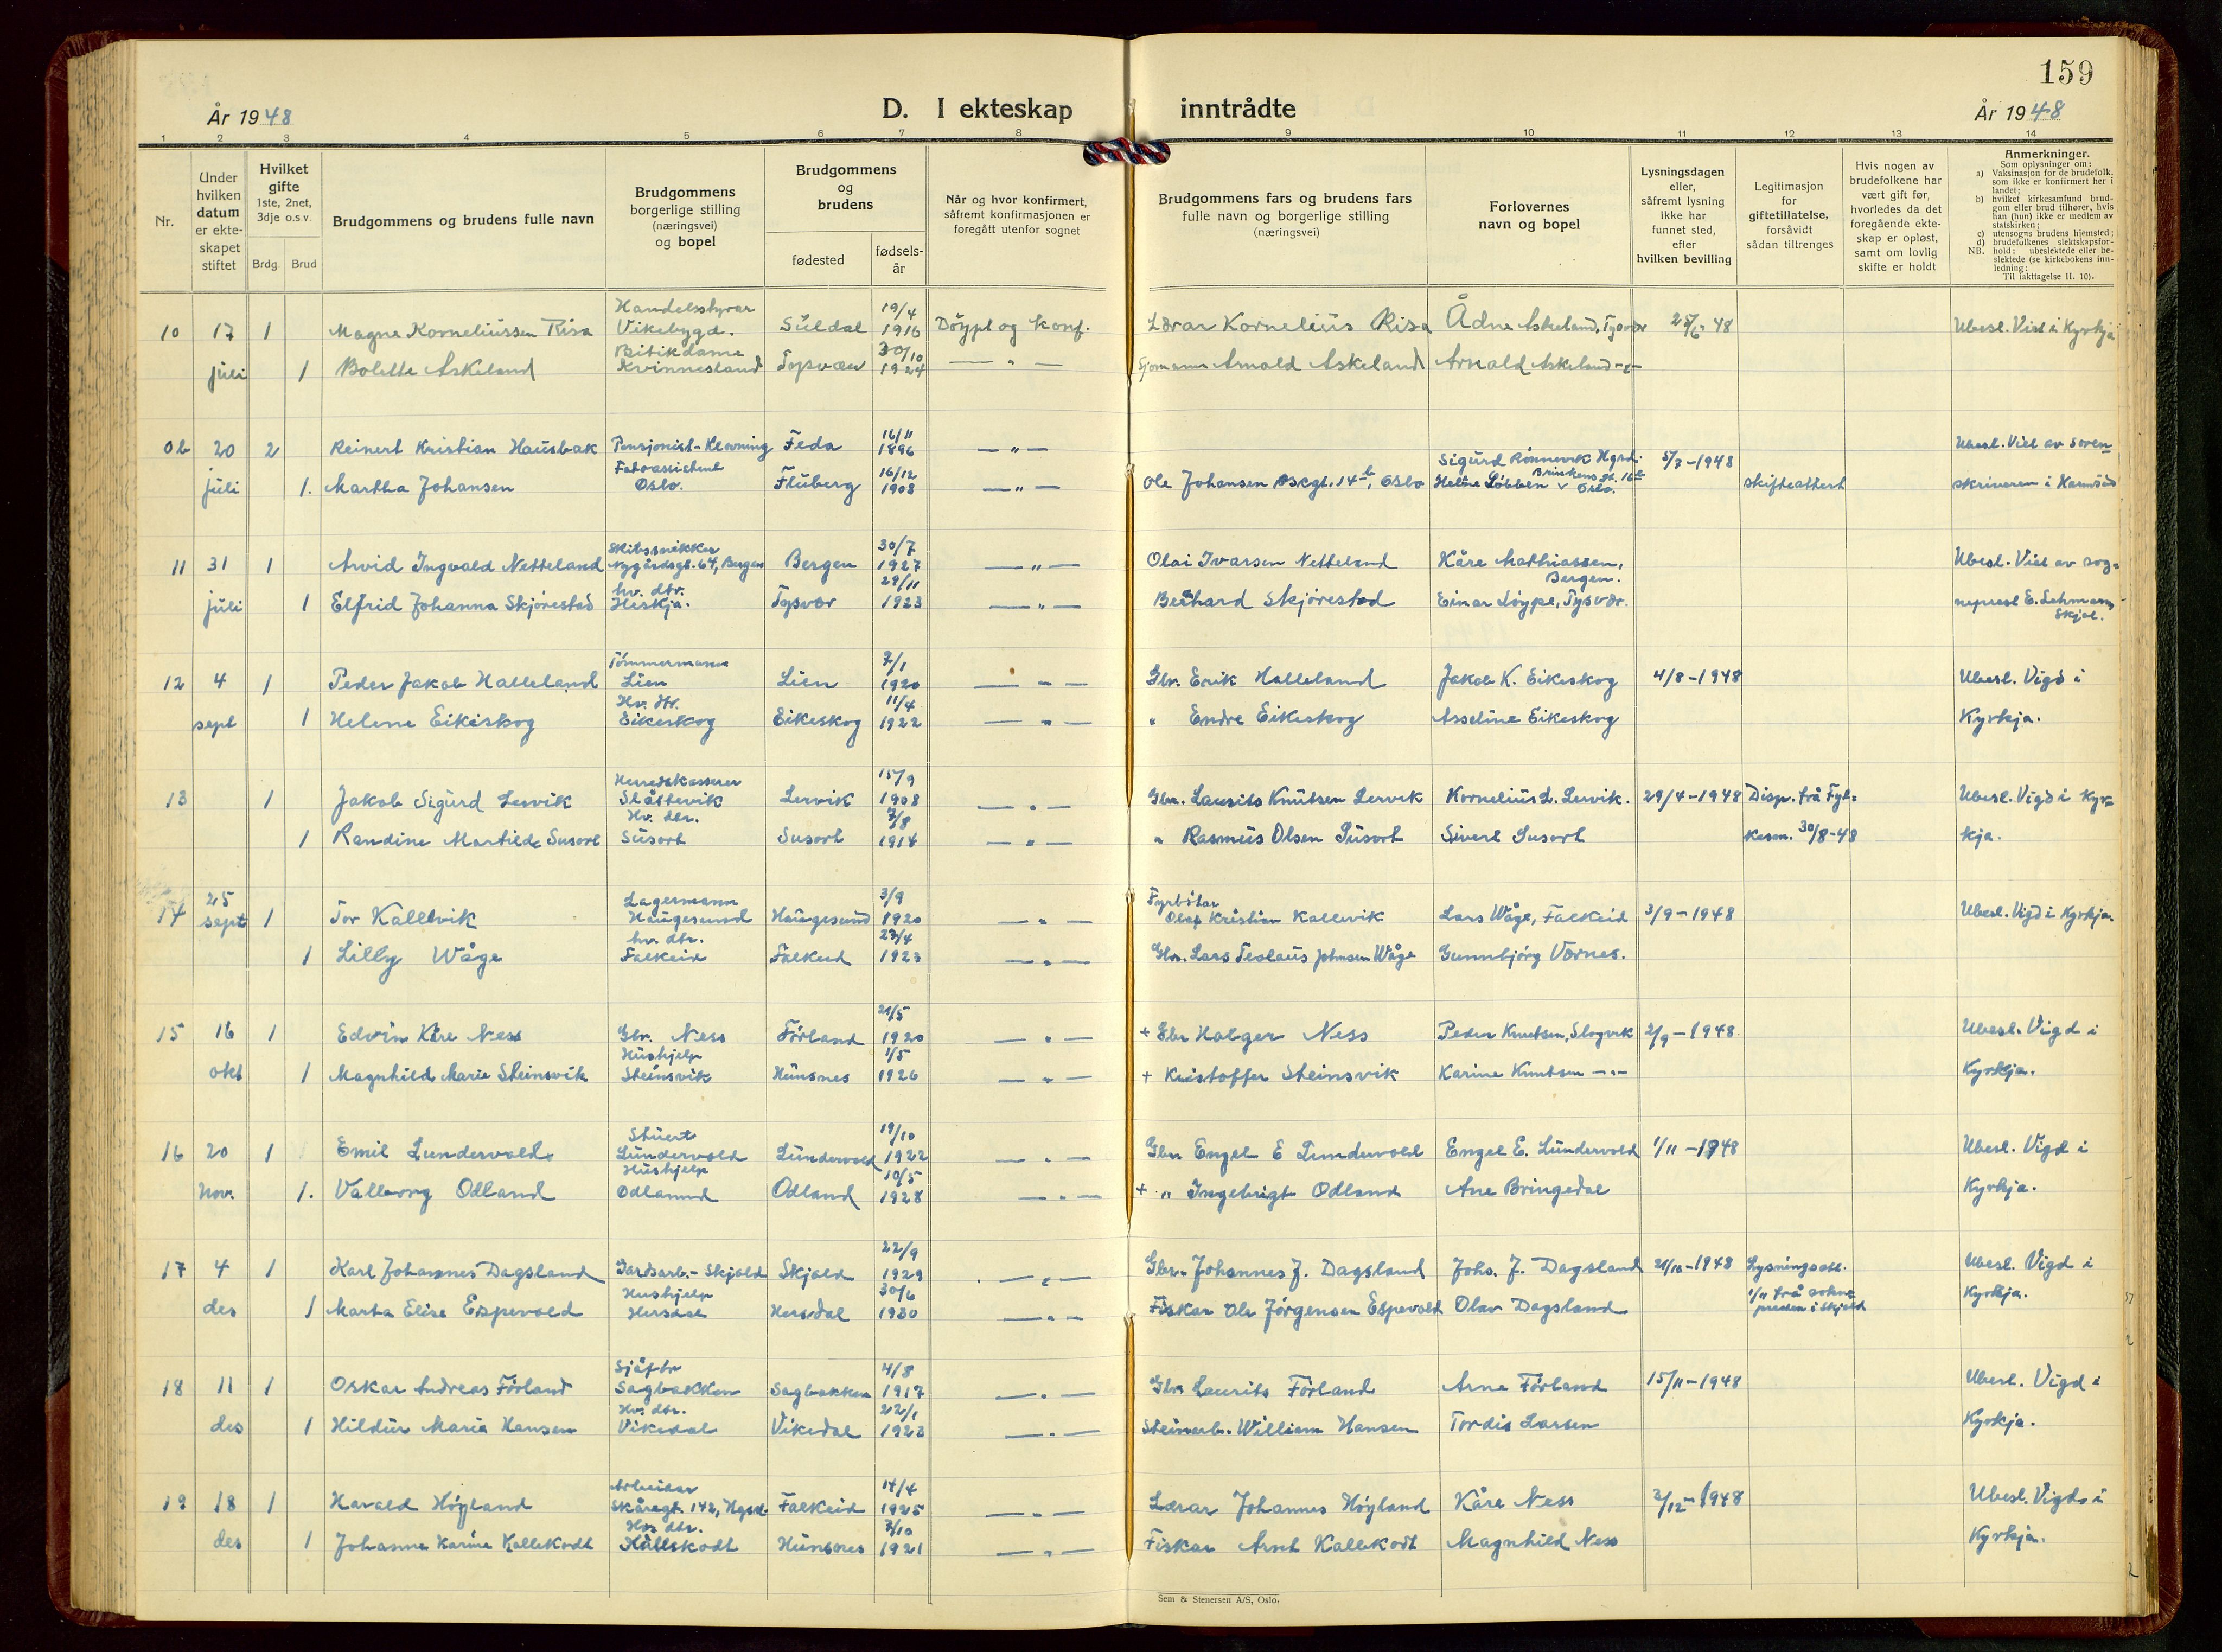 159
År 1948
D. I ekteskap inntrådte
År 1948
1 2 3 4 5 6 7 8 9 10 11 12 13 14
Nr.
Under hvilken datum er ekte-skapet stiftet
Hvilket gifte 1ste, 2net, 3dje o.s.v.
Brdg. Brud
Brudgommens og brudens fulle navn
Brudgommens borgerlige stilling (næringsvei) og bopel
Brudgommens og brudens
fødested
fødsels-år
Når og hvor konfirmert, såfremt konfirmasjonen er foregått utenfor sognet
Brudgommens fars og brudens fars fulle navn og borgerlige stilling (næringsvei)
Forlovernes navn og bopel
Lysningsdagen eller, såfremt lysning ikke har funnet sted, efter hvilken bevilling
Legitimasjon for giftetillatelse, forsåvidt sådan tiltrenges
Hvis nogen av brudefolkene har vært gift før, hvorledes da det foregående ekte-skap er opløst, samt om lovlig skifte er holdt
Anmerkninger.
Som oplysninger om:
a) Vaksinasjon for de brudefolk, som ikke er konfirmert her i landet;
b) hvilket kirkesamfund brud-gom eller brud tilhører, hvis han (hun) ikke er medlem av statskirken;
c) utensogns brudens hjemsted;
d) brudefolkenes slektskapsfor-hold: ubeslektede eller be-slektede (se kirkebokens inn-ledning:
NB. Til iakttagelse II. 10).
Handelsstyrar 19/4
10 17 1 Magne Korneliussen Risa Vikebygd. Suldal 1916 Döypt og konf. Lærar Kornelius Risa Ådne Askeland, Tysvær 25/6 48 Ubesl. Viet i Kyrkja
Butikdame 30/10
juli 1 Bolette Askeland Kvinnesland Tysvær 1924 — " — Sjømann Arnold Askeland Arnold Askeland -"-
16/11
Ob 20 2 Reinert Kristian Hausbak Pensjonist- Feda 1896 — " — Sigurd Rönnevik Hgsd. 5/7-1948 Ubesl. Viet av soren=
Fabr.assistent 16/12
juli 1. Martha Johansen Oslo. Fluberg 1908 — " — Ole Johansen 14b, Oslo 16b Oslo. Skifteattest skriveren i Karmsund
30/7
11 31 1 Arvid Ingvald Netteland Nygårdsgt. 64, Bergen Bergen 1927 — " — Olai Ivarsen Netteland Kåre Mathiassen, Bergen. Ubesl. Viet av sog=
hv. dtr. 29/11
juli 1 Elfrid Johanna Skjörestad Heskja. Tysvær 1923 — " — Bernhard Skjörestad Einar Löype, Tysvær. neprest E. Lehmann, Skjol.
Tömmermann 7/1
12 4 1 Peder Jakob Halleland Lien Lien 1920 — " — Gbr. Erik Halleland Jakob K. Eikeskog 4/8-1948 Ubesl. Vigd i
Hv. dtr. 11/4
sept 1 Helene Eikeskog Eikeskog Eikeskog 1922 — " — " Endre Eikeskog Asseline Eikeskog Kyrkja.
Herredskasserer 15/9
13 1 Jakob Sigurd Lervik Slåttevik Lervik 1908 — " — Gbr. Laurits Knutsen Lervik Kornelius L. Lervik. 29/4-1948 Disp. frå Fyl= Ubesl. Vigd i Kyr=
Hv. dtr. 7/8
1 Randine Martilde Susort Susort Susort 1914 — " — " Rasmus Olsen Susort Sivert Susort kesm. 30/8-48 kja.
25 Lagermann 3/9 Fyrbötar
14 sept 1 Tor Kallevik Haugesund Haugesund 1920 — " — Olaf Kristian Kallevik Lars Våge, Falkeid 3/9-1948 Ubesl. Vigd i Kyrkja.
hv. dtr. 23/4
1 Lilly Våge Falkeid Falkeid 1923 — " — Gbr. Lars Johnsen Våge Gunnbjörg Værnes.
21/5
15 16 1 Edvin Kåre Ness Gbr. Ness Förland 1920 — " — + Gbr Holger Ness Peder Knutsen, Slogvik 2/9-1948 Ubesl. Vigd i
Hushjelp 1/5
okt 1 Magnhild Marie Steinsvik Steinsvik Hunsnes 1926 — " — + Kristoffer Steinsvik Karine Knutsen -"- Kyrkja.
Stuert 19/10
16 20 1 Emil Lundervold. Lundervold Lundervold 1922 — " — Gbr Engel E Lundervold Engel E. Lundervold 1/11-1948 Ubesl. Vigd i
Hushjelp 10/5
Nov. 1. Valborg Odland Odlannd Odland 1928 — " — + " Ingebrigt Odland Ane Bringedal Kyrkja.
22/9
17 4 1 Karl Johannes Dagsland Gardsarb.- Skjold Skjold 1929 — " — Gbr. Johannes J. Dagsland Johs. J. Dagsland 21/10-1948 Lysningsatt. Ubesl. Vigd i
Hushjelp 30/6
des 1 Marta Elise Espevold Hersdal Hersdal 1930 — " — Fiskar Ole Jörgensen Espevold Olav Dagsland 1/11 frå sokne presten i Skjold Kyrkja.
4/8
18 11 1 Oskar Andreas Förland Sagbakken Sagbakken 1917 — " — Gbr Laurits Förland Arne Förland 15/11-1948 Ubesl. Vigd i
Hv. dtr. 22/1
des 1 Hildur Maria Hansen Vikedal Vikedal 1923 — " — Steinarb. William Hansen Tordis Larsen Kyrkja.
Arbeidar 14/4
19 18 1 Harald Höyland Skåregt. 142, Hgsd. Falkeid 1925 — " — Lærar Johannes Höyland Kåre Ness 2/12-1948 Ubesl. Vigd i
Hv. dtr. 7/10
des 1 Johanne Karine Kallekodt Kallekodt Hunsnes 1921 — " — Fiskar Arnt Kallekodt Magnhild Ness Kyrkja.
Sem & Stenersen A/S, Oslo.